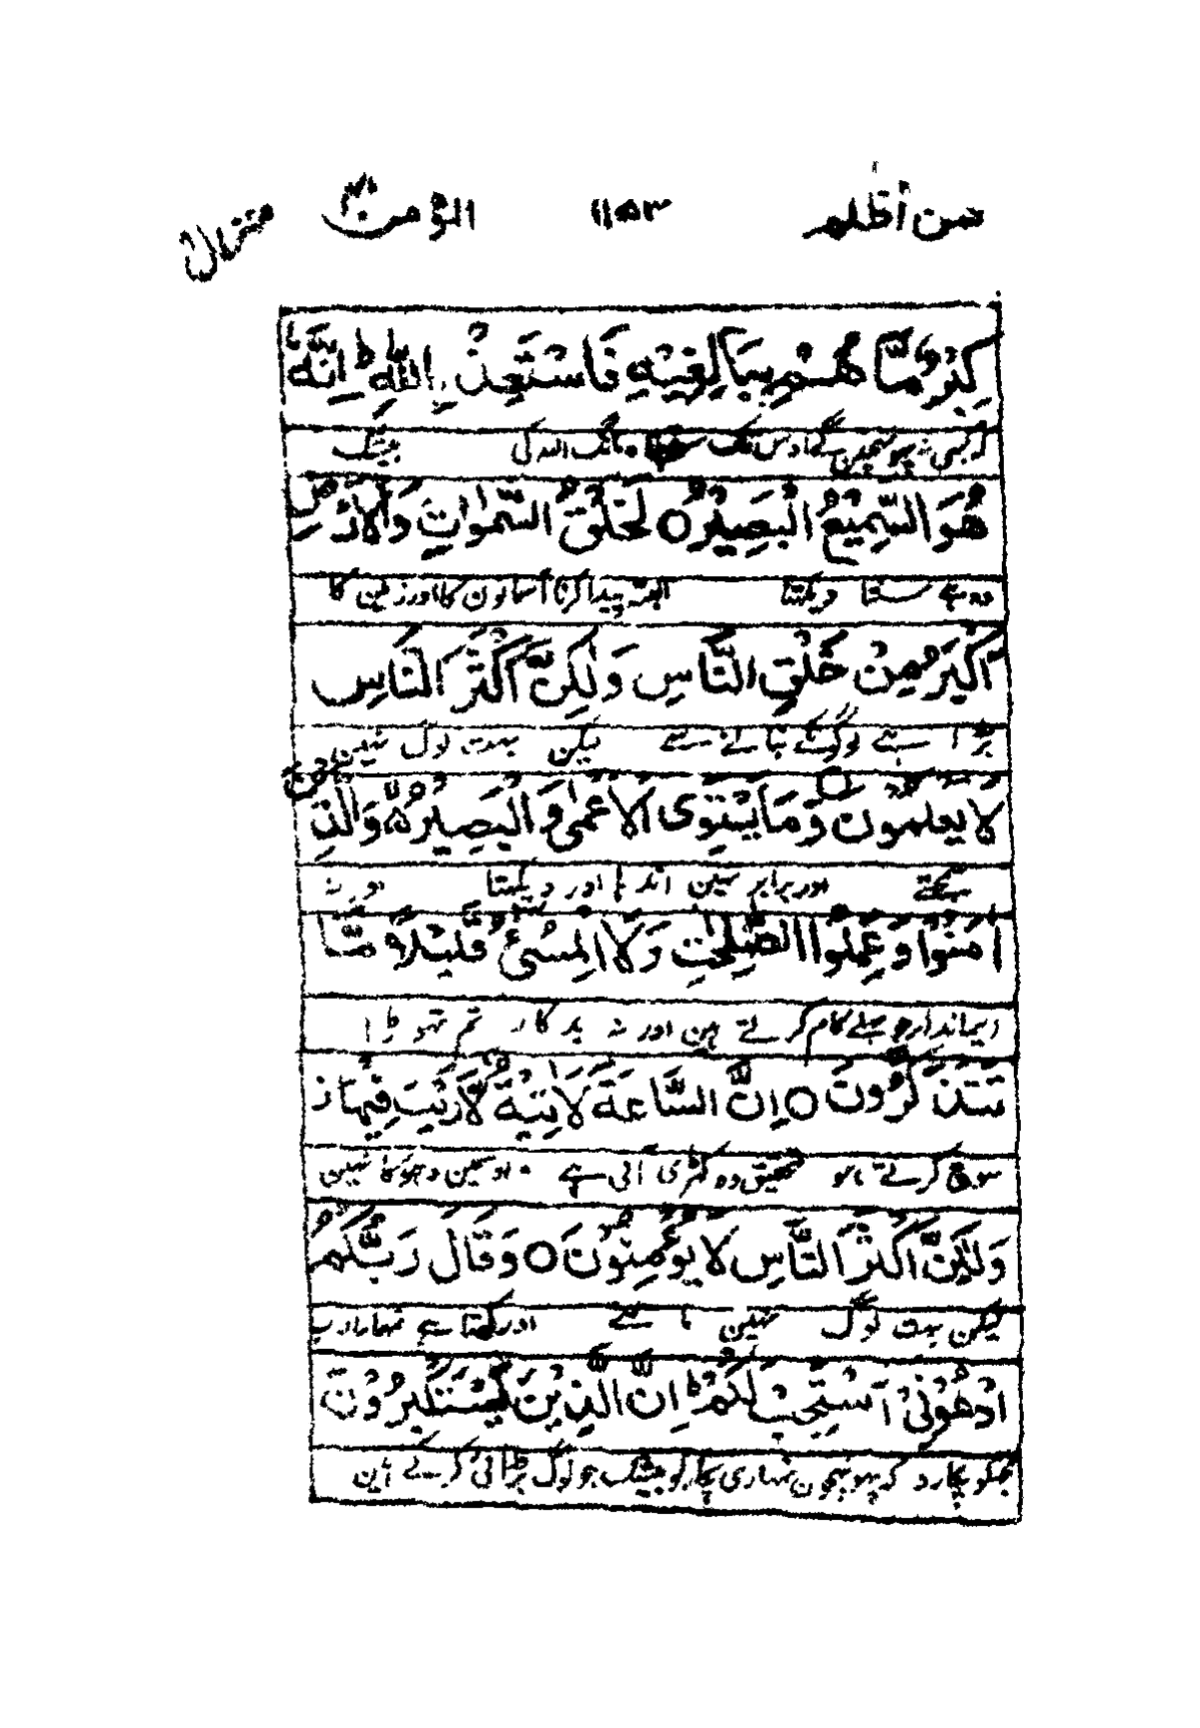 فمن أظلم ١١٥٣ المؤمن ٤٠ منزل
كِبْرٌ مَّا هُمْ بِبَالِغِيْهِ فَاسْتَعِذْ بِاللّٰهِ ؕ اِنَّهٗ
تک مانگ اللہ کی بیشک
هُوَ السَّمِيْعُ الْبَصِيْرُ ○ لَخَلْقُ السَّمٰوٰتِ وَالْاَرْضِ
وہ ہے سنتا دیکھتا البتہ پیدا کرنا آسمانون کا اور زمین کا
اَكْبَرُ مِنْ خَلْقِ النَّاسِ وَلٰكِنَّ اَكْثَرَ النَّاسِ
بڑا ہے لوگونکے بنانے سے لیکن بہت لوگ نہین
لَا يَعْلَمُوْنَ ○ وَمَا يَسْتَوِى الْاَعْمٰى وَالْبَصِيْرُ ۙ وَالَّذِيْنَ
سمجھتے اور برابر نہین اندہا اور دیکھتا اور نہ
اٰمَنُوْا وَعَمِلُوا الصّٰلِحٰتِ وَلَا الْمُسِىْٓءُ ؕ قَلِيْلًا مَّا
ایماندار جو بھلے کام کرتے ہین اور نہ بدکار تم تھوڑا
تَتَذَكَّرُوْنَ ○ اِنَّ السَّاعَةَ لَاٰتِيَةٌ لَّا رَيْبَ فِيْهَا ز
سوچ کرتے ہو تحقیق وہ گھڑی آنی ہے اوسمین دھوکا نہین
وَلٰكِنَّ اَكْثَرَ النَّاسِ لَا يُؤْمِنُوْنَ ○ وَقَالَ رَبُّكُمُ
لیکن بہت لوگ نہین مانتے اور کہتا ہے تمہارا رب
ادْعُوْنِىْٓ اَسْتَجِبْ لَكُمْ ؕ اِنَّ الَّذِيْنَ يَسْتَكْبِرُوْنَ
مجکو پکارو کہ پہونچون تمہاری پکار کو بیشک جو لوگ بڑائی کرتے ہین